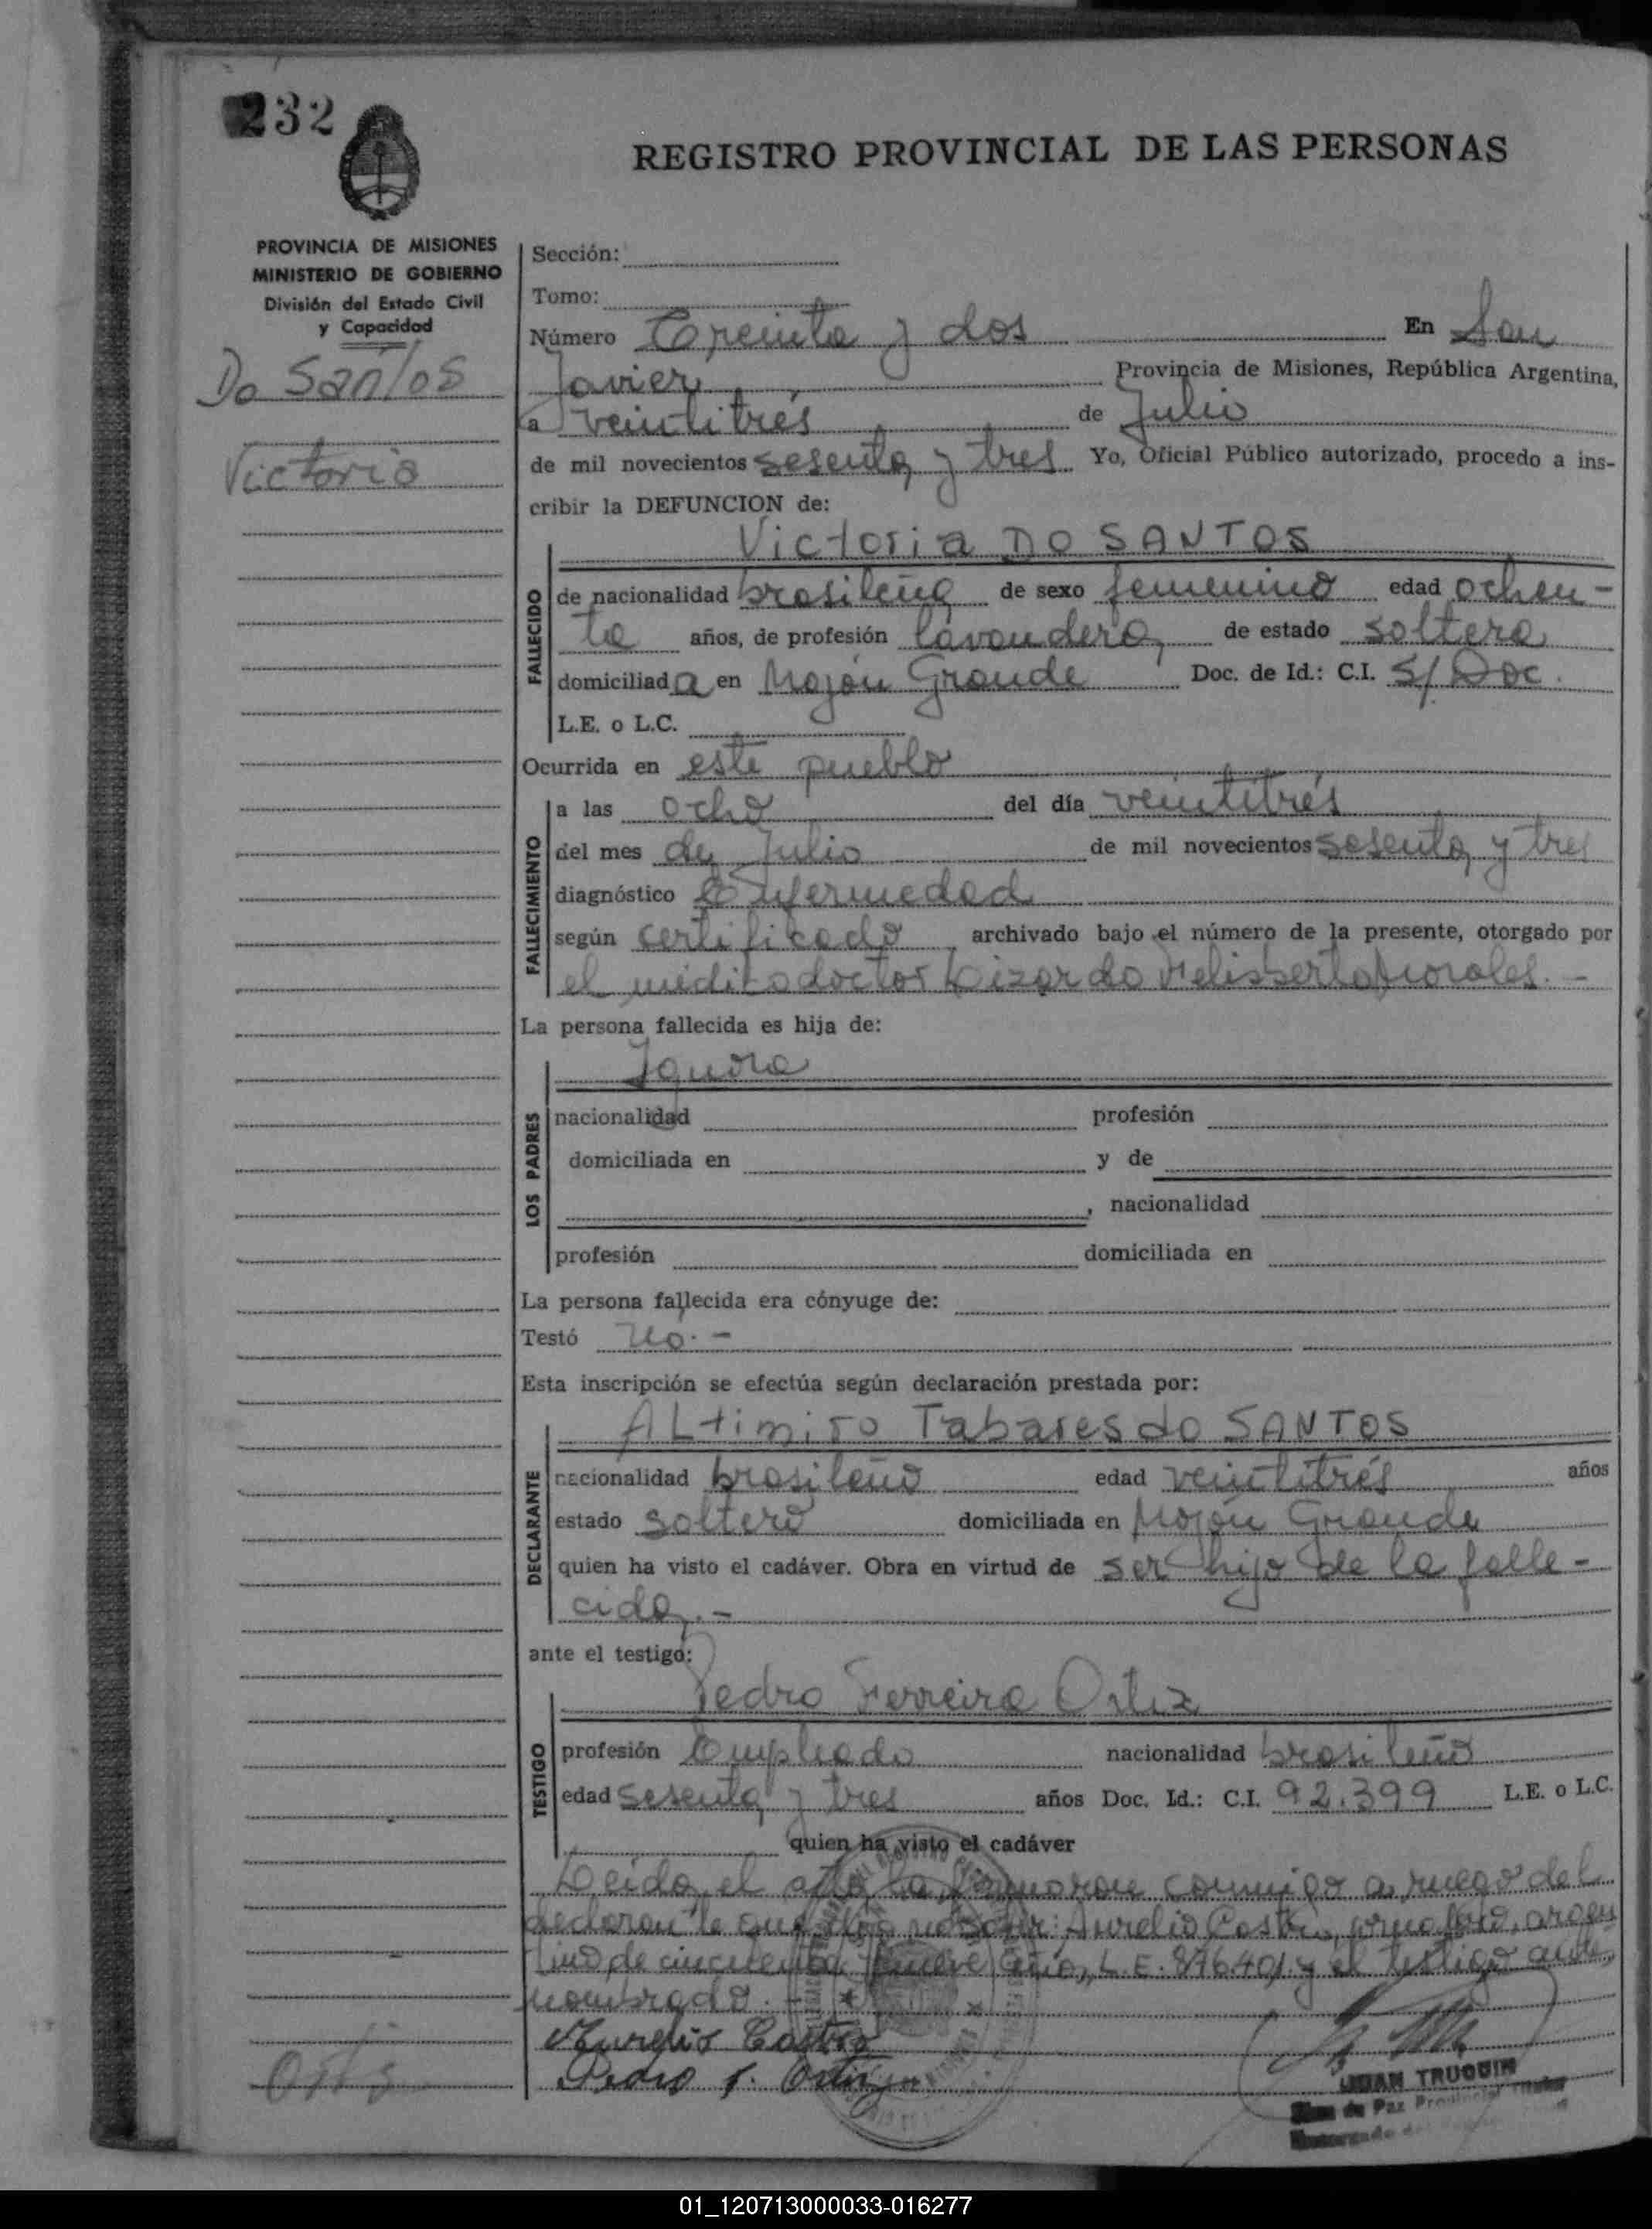 232
REGISTRO PROVINCIAL DE LAS PERSONAS
PROVINCIA DE MISIONES
MINISTERIO DE GOBIERNO
División del Estado Civil
y Capacidad
Do Santos
Victoria
Sección:
Tomo:
Número Treinta y dos En San
Javier Provincia de Misiones, República Argentina,
a veintitrés de Julio
de mil novecientos sesenta y tres Yo, Oficial Público autorizado, procedo a ins-
cribir la DEFUNCION de:
Victoria DO SANTOS
FALLECIDO
de nacionalidad brasileña de sexo femenino edad ochen-
ta años, de profesión lavandera, de estado soltera
domiciliada en Mojón Grande Doc. de Id.: C.I. S/ Doc.
L.E. o L.C.
Ocurrida en este pueblo
FALLECIMIENTO
a las ocho del día veintitrés
del mes de Julio de mil novecientos sesenta y tres
diagnóstico Enfermedad
según certificado archivado bajo el número de la presente, otorgado por
el médico doctor Lizardo Morales.-
La persona fallecida es hija de:
Ignora
LOS PADRES
nacionalidad profesión
domiciliada en y de
, nacionalidad
profesión domiciliada en
La persona fallecida era cónyuge de:
Testó No.-
Esta inscripción se efectúa según declaración prestada por:
ALtimiro Tabares do SANTOS
DECLARANTE
nacionalidad brasileño edad veintitrés años
estado soltero domiciliada en Mojón Grande
quien ha visto el cadáver. Obra en virtud de ser hijo de la falle-
cida.-
ante el testigo:
Pedro Ferreira Ortiz
TESTIGO
profesión Empleado nacionalidad brasileño
edad sesenta y tres años Doc. Id.: C.I. 92.399 L.E. o L.C.
quien ha visto el cadáver
Leída el acta la firmaron conmigo a ruego del
declarante que dijo no saber: Aurelio Castro, argen
tino de cincuenta y nueve años, L.E. 876401 y el testigo ante
nombrado.-
Aurelio Castro
Pedro F. Ortiz
JUAN TRUQUIN
Juez de Paz Provincial Titular
Encargado del
Ortiz
01_120713000033-016277